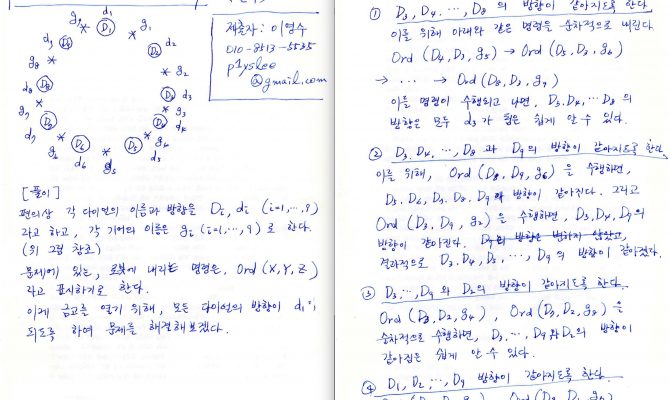 제출자: 이영수
010-8513-5535
p1yslee
@gmail.com
[풀이]
편의상 각 다이얼의 이름과 방향을 Di, di (i=1,…,9)
라고 하고, 각 기어의 이름은 gi (i=1,…,9)로 한다.
(위 그림 참조)
문제에 있는, 로봇에 내리는 명령은, Ord(X,Y,Z)
라고 표시하기로 한다.
이제 금고를 열기 위해, 모든 다이얼의 방향이 d1이
되도록 하여 문제를 해결해보겠다.
① D3, D4, …, D8 의 방향이 같아지도록 한다.
이를 위해 아래와 같은 명령을 순차적으로 내린다
Ord (D4, D3, g5) → Ord (D5, D3, g6)
→ … → Ord (D8, D3, g9)
이들 명령이 수행되고 나면, D3, D4, … D8 의
방향은 모두 d3가 됨은 쉽게 알 수 있다.
② D3, D4, …, D8 과 D9의 방향이 같아지도록 한다.
이를 위해, Ord (D8, D9, g6) 을 수행하면,
D5, D6, D7, D8, D9 방향이 같아진다. 그리고
Ord (D3, D9, g2) 을 수행하면, D3, D4, D9의
방향이 같아진다.
결과적으로 D3, D4, D5, …, D9 의 방향이 같아졌다.
③ D3, …, D9 와 D2의 방향이 같아지도록 한다.
Ord (D3, D2, g4), Ord (D3, D2, g8) 을
순차적으로 수행하면, D3, …, D9와 D2의 방향이
같아짐은 쉽게 알 수 있다.
④ D1, D2, …, D9 방향이 같아지도록 한다.